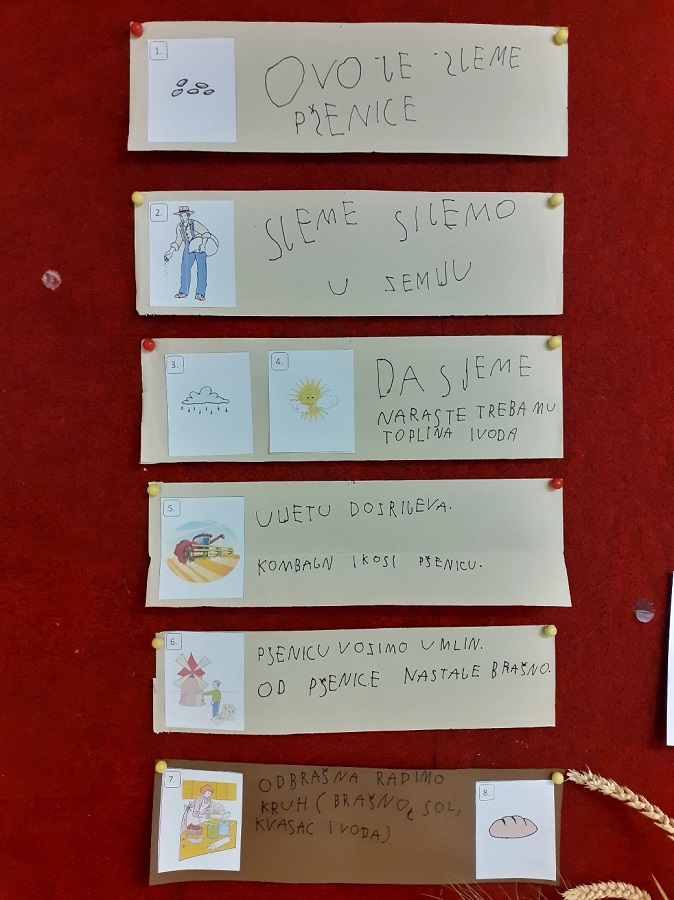 1.
OVO JE SJEME
PŠENICE
2.
SJEME SIJEMO
U ZEMLJU
3.
4.
DA SJEME
NARASTE TREBA MU
TOPLINA I VODA
5.
U LJETU DOZRIJEVA.
KOMBAJN I KOSI PŠENICU.
6.
PŠENICU VOZIMO U MLIN.
OD PŠENICE NASTAJE BRAŠNO.
7.
OD BRAŠNA RADIMO
KRUH ( BRAŠNO, SOL,
KVASAC I VODA)
8.